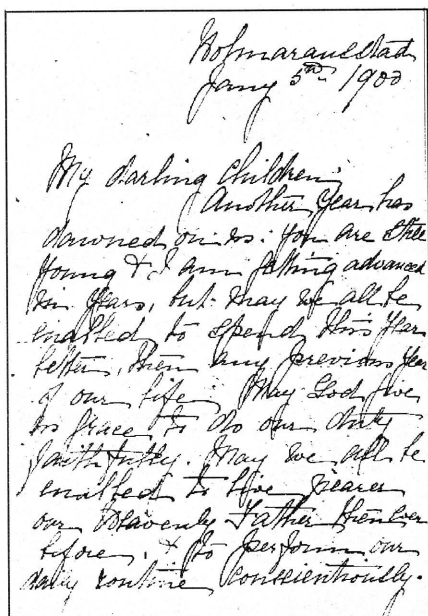 Wolmaransstad
Jany 5th 1900
My darling Children,
Another Year has
dawned on us: you are still
young & I am getting advanced
in Years, but may we all be
enabled to spend this Year
better, then any previous Year
of our life, May God give
us grace to do our duty
faithfully. May we all be
enabled to live nearer
our Heavenly Father then ever
before, & to perform our
daily routine conscientiously.